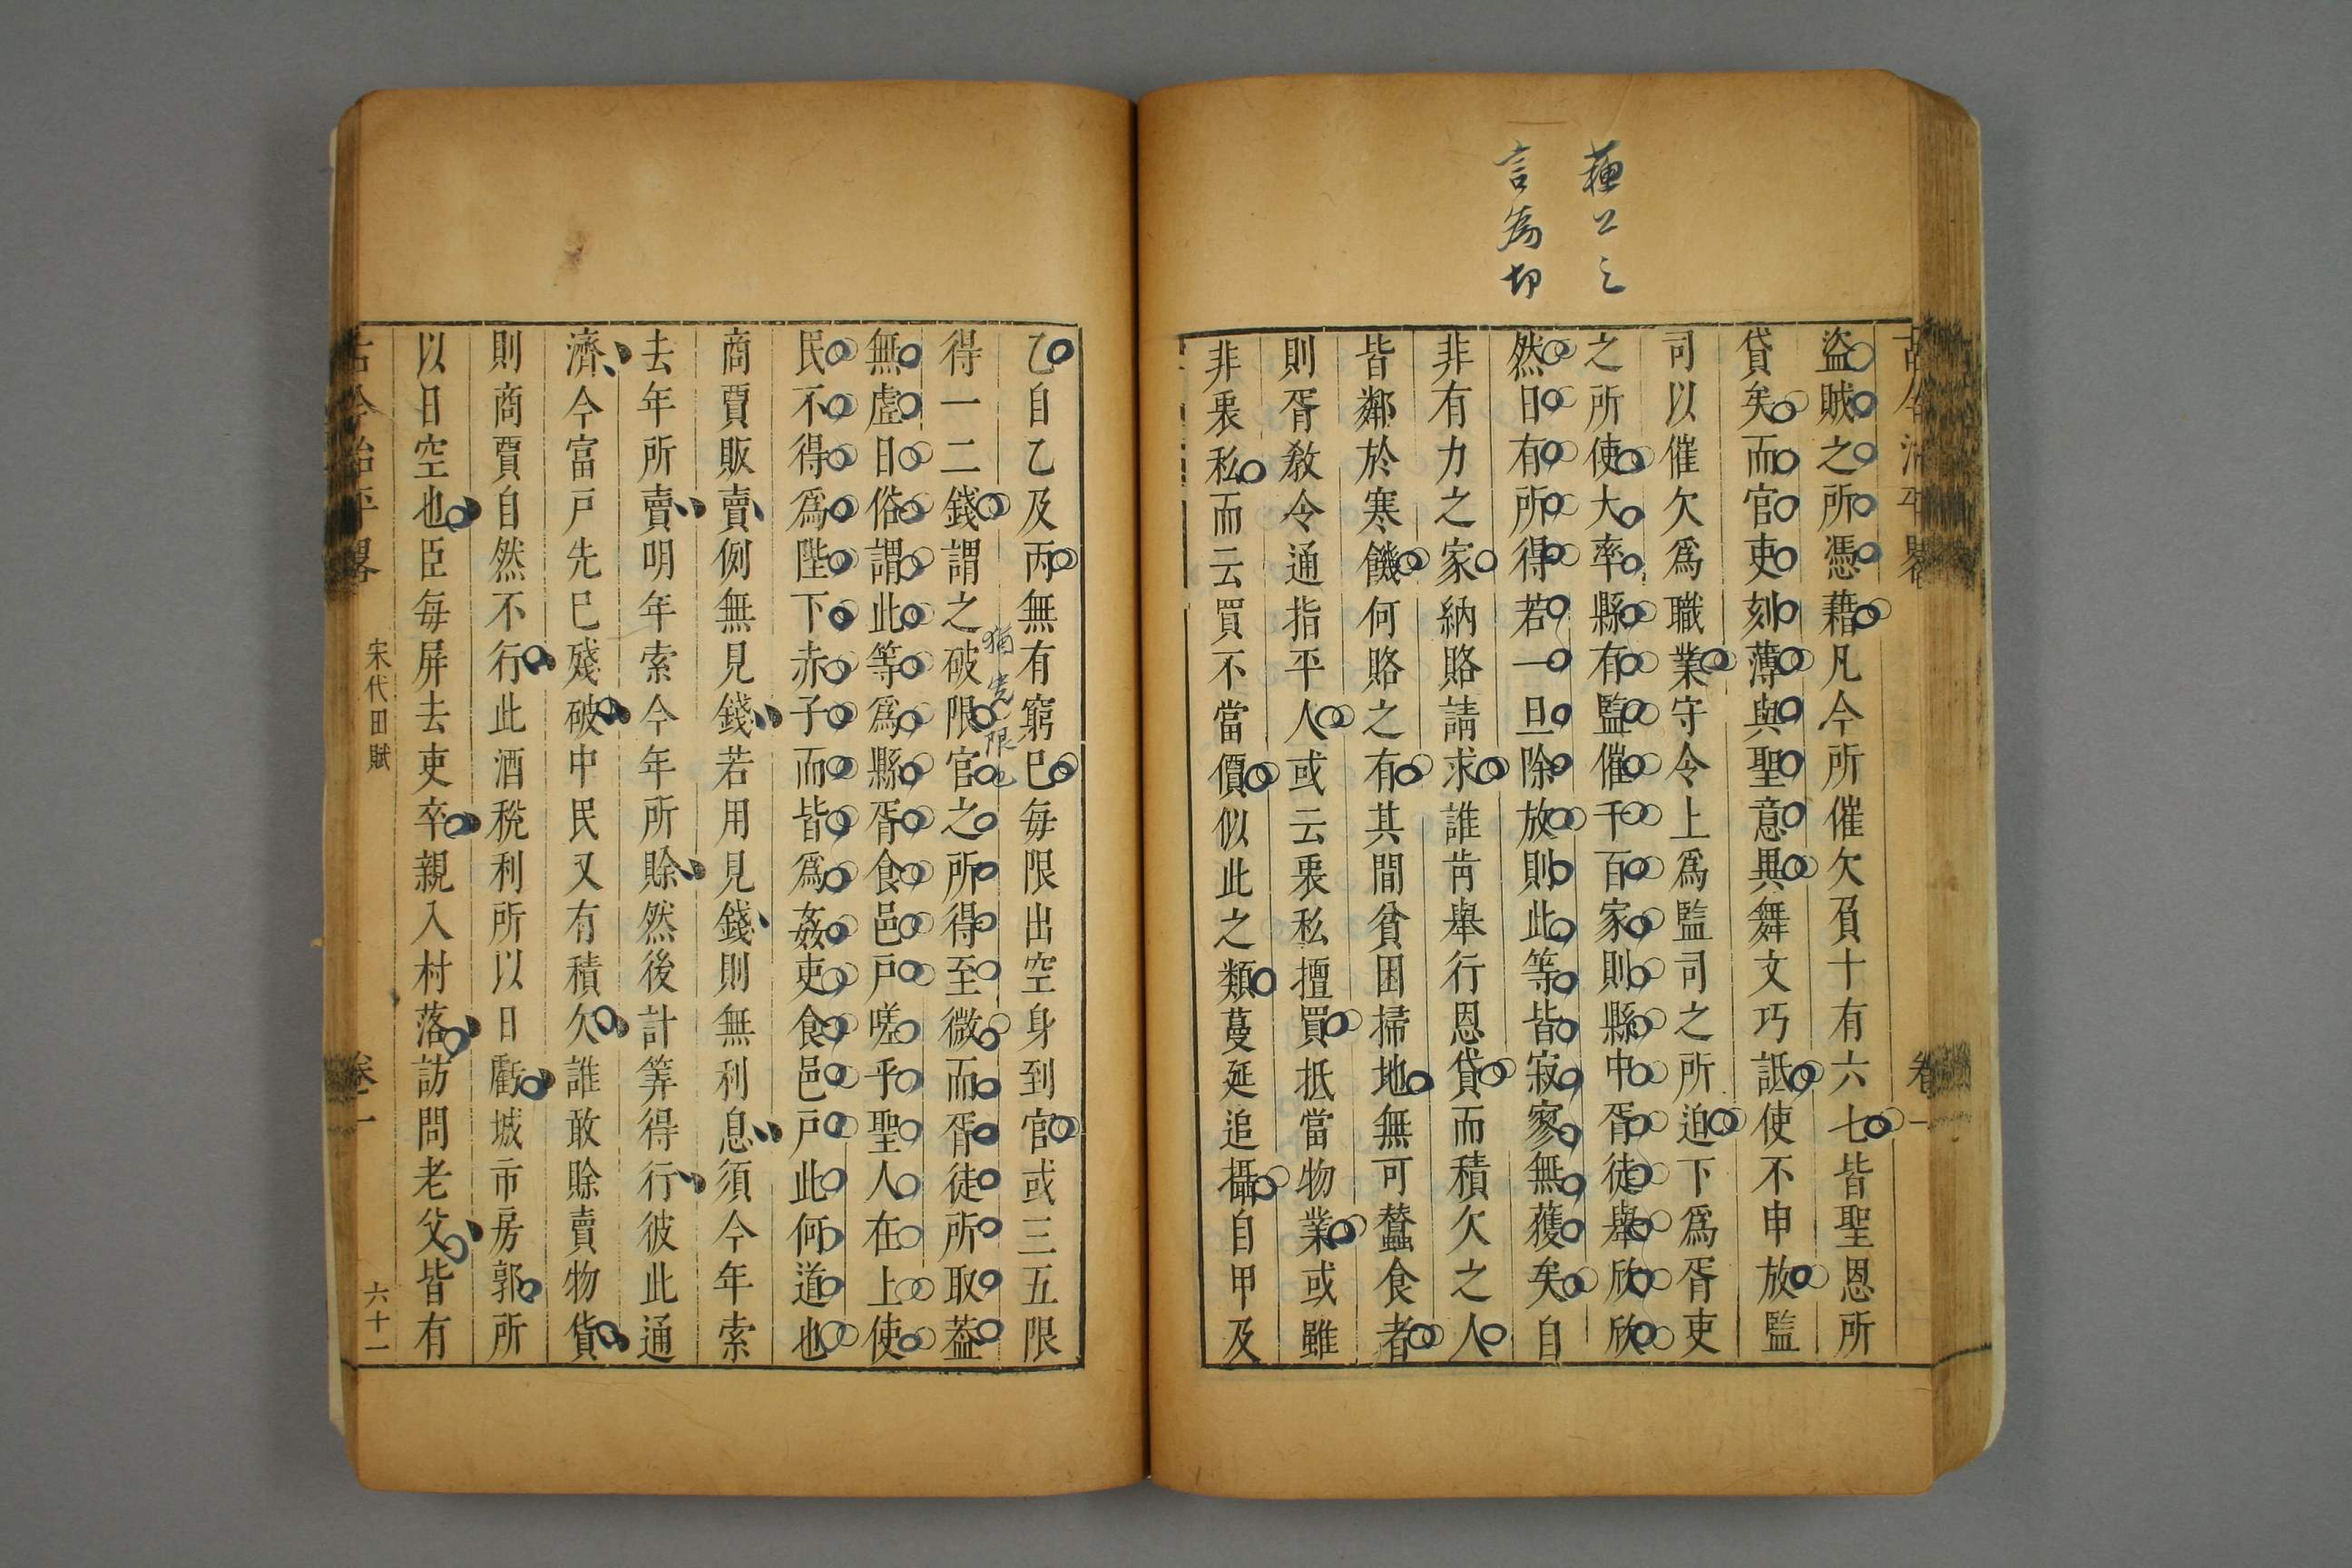 蘇公之
言爲切
盜賊之所憑藉凡今所催欠負十有六七皆聖恩所
貸矣而官吏刻薄與聖意異舞文巧詆使不申放監
司以催欠爲職業守令上爲監司之所迫下爲胥吏
之所使大率縣有監催千百家則縣中胥徒舉欣欣
然日有所得若一旦除放則此等皆寂寥無獲矣自
非有力之家納賂請求誰肯舉行恩貸而積欠之人
皆鄰於寒饑何賂之有其間貧困掃地無可蠶食者
則胥教令通指平人或云裹私擅買抵當物業或雖
非裹私而云買不當價似此之類蔓延追攝自甲及
乙自乙及丙無有窮已每限出空身到官或三五限
得一二錢謂之破限官之所得至微而胥徒所取蓋
無虛日俗謂此等爲縣胥食邑戶嗟乎聖人在上使
民不得爲陛下赤子而皆爲姦吏食邑戶此何道也
商賈販賣例無見錢若用見錢則無利息須今年索
去年所賣明年索今年所賒然後計筭得行彼此通
濟今富戶先已殘破中民又有積欠誰敢賒賣物貨
則商賈自然不行此酒稅利所以日虧城市房郭所
以日空也臣每屏去吏卒親入村落訪問老父皆有
古今治平畧
宋代田賦
卷一
六十一